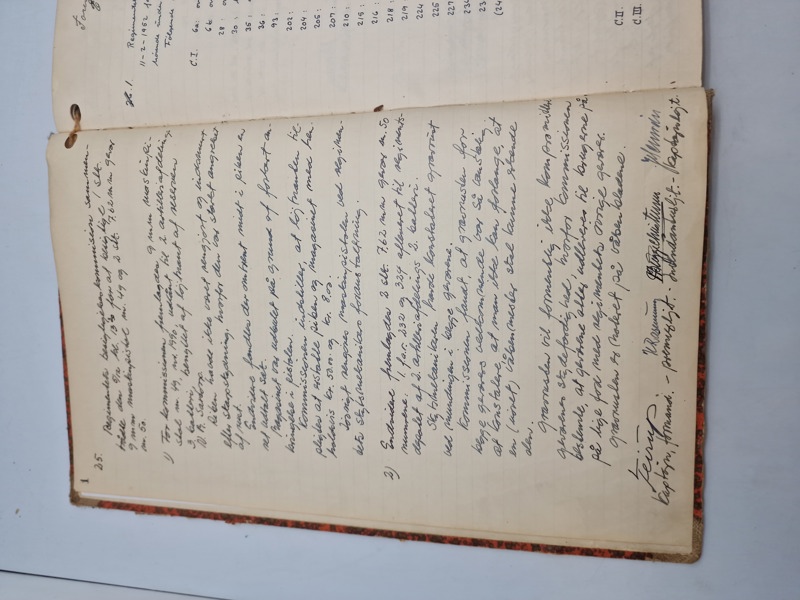 1
25.
Regimentets besigtigelseskommission sammen-
trådte den 5/12 kl. 13³⁰ for at besigtige 1 stk.
9 mm maskinpistol m. 49 og 2 stk. 7.62 mm gevær
m. 50.
1) For kommissionen fremlagdes 9 mm maskinpi-
stol m. 49, nr. 1990, udlånt til 2. artilleriafdelings
3. batteri, benyttet af løjtnant af reserven
Riben havde ikke været rengjort og indsmurt
efter skarpskydning, hvorfor den var stærkt angrebet
af rust.
Endvidere fandtes der omtrent midt i riben en
ret udtalt
Magasinet var udbulet på grund af forkert an-
bringelse i pistolen.
Kommissionen indstiller, at løjtnanten til-
pligtes at erstatte piben og magasinet med hen-
holdsvis kr. 50.00 og kr. 8.00.
Iøvrigt rengøres maskinpistolen ved regimen-
tets våbenmekanikers foranstaltning.
2) Endvidere fremlagdes 2 stk. 7.62 mm gevær m. 50
numrene: 1. f.a.r. 232 og 324 afleveret til regiments-
depotet af 2. artilleriafdelings 2. batteri.
havde konstateret gravrust
ved mundingen i begge geværene.
Kommissionen fandt, at gravrusten for
begge geværers vedkommende var så vanskelig
at konstatere, at man ikke kan forlange, at
en (uøvet) våbenmester skal kunne erkende
den.
Gravrusten vil formentlig ikke kompromittere
geværenes skydefærdighed, hvorfor kommissionen
bestemte, at geværene atter udleveres til brugerne på
på lige fod med regimentets øvrige geværer.
Gravrusten er noteret på våbenbladene.
Kaptajn, formand. - premierljt. - Intendanturljt. - Kaptajnløjt.
26. 1.
Regimentets
11-2-1952
Følgende
C.I. 6a:
6b
28:
30:
35:
36:
93:
202:
204:
205:
207:
210:
215:
216
218:
219
224
225
227
23
23
(24
C.II.
C.III.